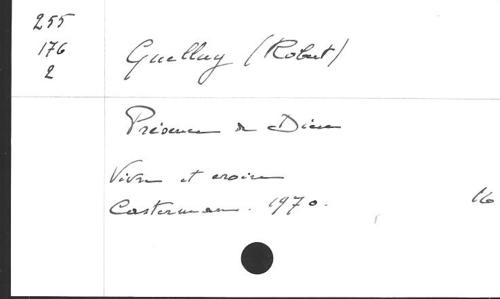 255
176
2
Guelluy (Robert)
Présence de Dieu
Vivre et croire
Casterman. 1970.
16